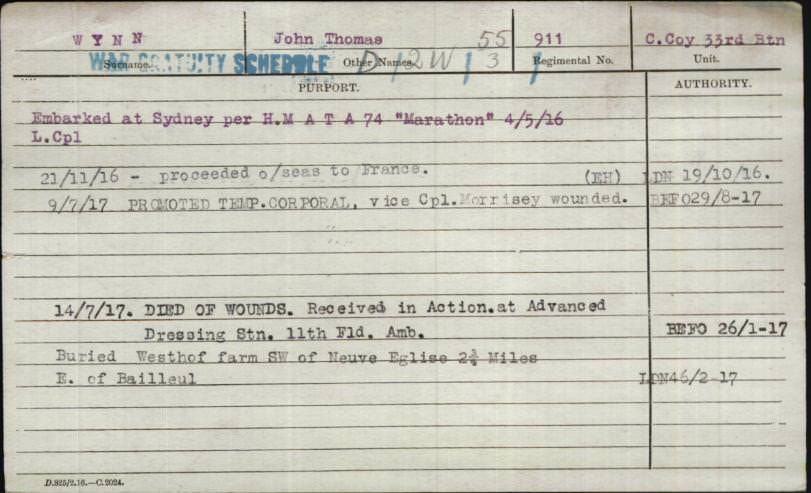 WYNN John Thomas 55 911 C.Coy 33rd Btn
WAR GRATUITY SCHEDULE D/2W/3/
Surname. Other Names. Regimental No. Unit.
PURPORT. AUTHORITY.
Embarked at Sydney per H.M A T A 74 "Marathon" 4/5/16
L.Cpl
21/11/16 - proceeded o/seas to France. (EH) LDN 19/10/16.
9/7/17 PROMOTED TEMP.CORPORAL, vice Cpl.Morrisey wounded. BEFO29/8-17
14/7/17. DIED OF WOUNDS. Received in Action.at Advanced
Dressing Stn. 11th Fld. Amb. BEFO 26/1-17
Buried Westhof farm SW of Neuve Eglise 2¾ Miles
E. of Bailleul LDN46/2-17
D.825/2.16.—C.2024.